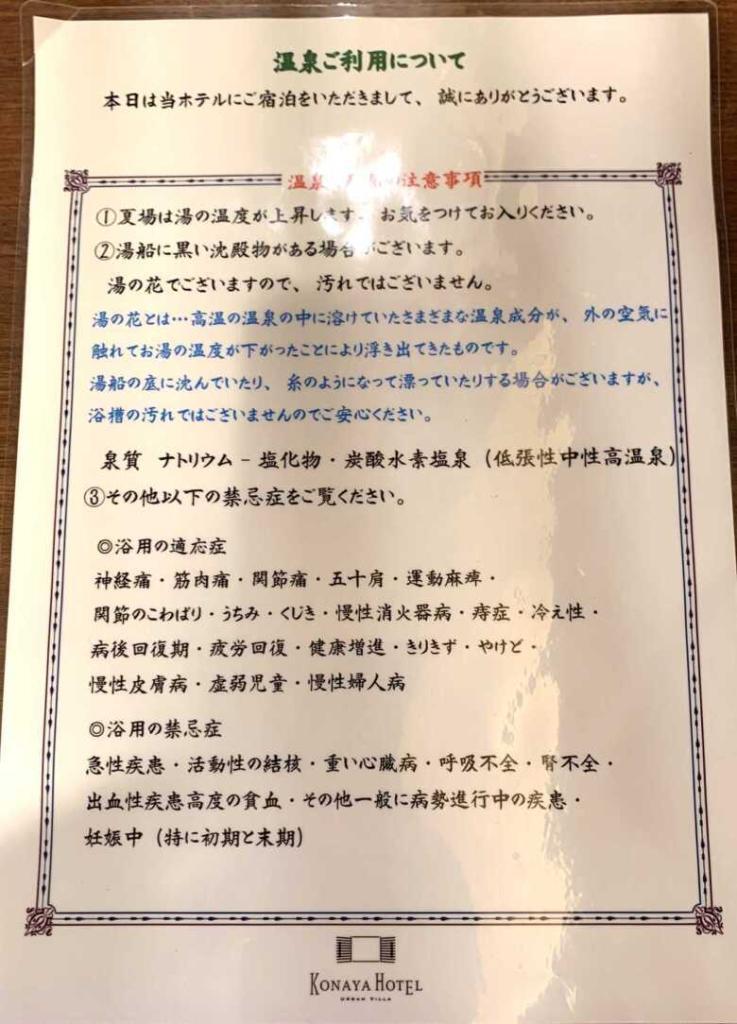 温泉ご利用について
本日は当ホテルにご宿泊をいただきまして、誠にありがとうございます。
温泉 注意事項
①夏場は湯の温度が上昇します。お気をつけてお入りください。
②湯船に黒い沈殿物がある場合がございます。
湯の花でございますので、汚れではございません。
湯の花とは…高温の温泉の中に溶けていたさまざまな温泉成分が、外の空気に
触れてお湯の温度が下がったことにより浮き出てきたものです。
湯船の底に沈んでいたり、糸のようになって漂っていたりする場合がございますが、
浴槽の汚れではございませんのでご安心ください。
泉質 ナトリウム-塩化物・炭酸水素塩泉(低張性中性高温泉)
③その他以下の禁忌症をご覧ください。
◎浴用の適応症
神経痛・筋肉痛・関節痛・五十肩・運動麻痺・
関節のこわばり・うちみ・くじき・慢性消火器病・痔症・冷え性・
病後回復期・疲労回復・健康増進・きりきず・やけど・
慢性皮膚病・虚弱児童・慢性婦人病
◎浴用の禁忌症
急性疾患・活動性の結核・重い心臓病・呼吸不全・腎不全・
出血性疾患高度の貧血・その他一般に病勢進行中の疾患・
妊娠中(特に初期と末期)
KONAYA HOTEL
URBAN VILLA